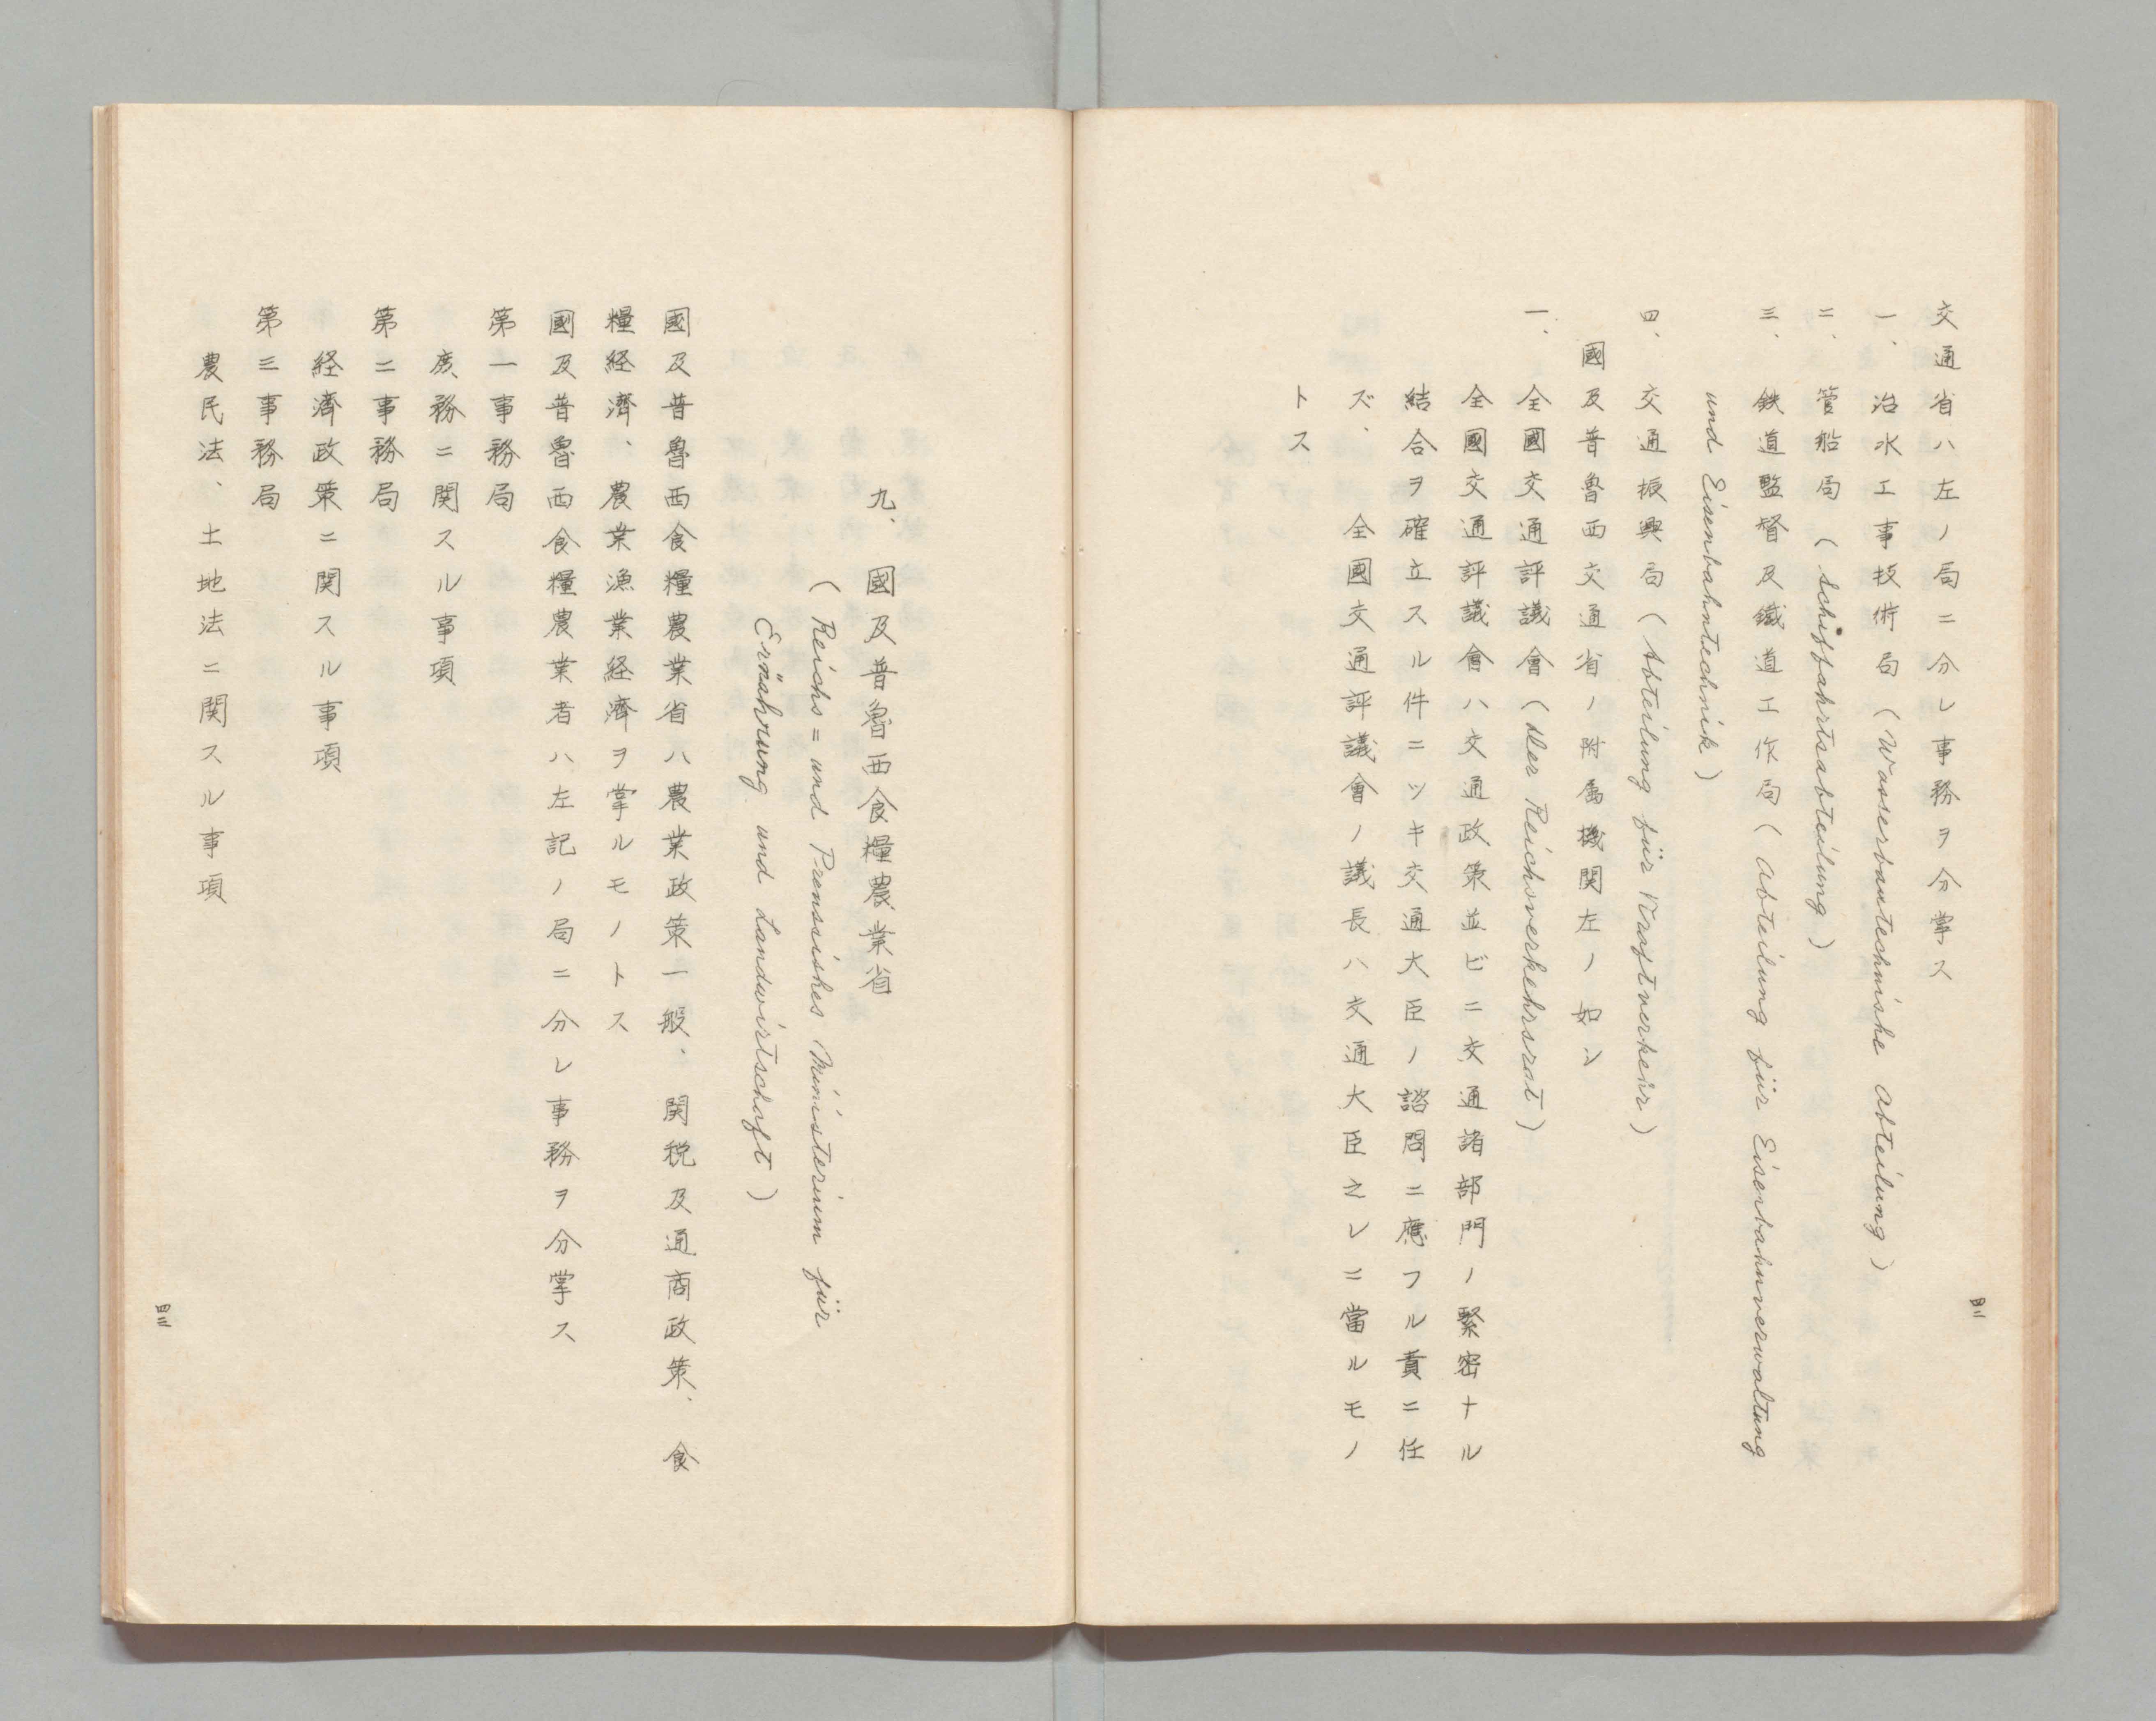 交通省ハ左ノ局ニ分レ事務ヲ分掌ス
一、治水工事技術局(Wasserbautechnishe Abteilung)
二、管船局(Schiffahrtsabteilung)
三、鉄道監督及鐵道工作局(Abteilung für Eisenbahnverwaltung
und Eisenbahntechnik)
四、交通振興局(Abteilung für Kraftverkehr)
國及普魯西交通省ノ附属機関左ノ如シ
一、全國交通評議會(Der Reichsverkehrsrat)
全國交通評議會ハ交通政策並ビニ交通諸部門ノ緊密ナル
結合ヲ確立スル件ニツキ交通大臣ノ諮問ニ應フル責ニ任
ズ、全國交通評議會ノ議長ハ交通大臣之レニ當ルモノ
トス
四二
九、國及普魯西食糧農業省
(Reichs=und Prenssishes Ministerium für
Ernährung und Landwirtschaft)
國及普魯西食糧農業省ハ農業政策一般、関税及通商政策、食
糧経濟、農業漁業経濟ヲ掌ルモノトス
國及普魯西食糧農業者ハ左記ノ局ニ分レ事務ヲ分掌ス
第一事務局
庶務ニ関スル事項
第二事務局
経濟政策ニ関スル事項
第三事務局
農民法、土地法ニ関スル事項
四三